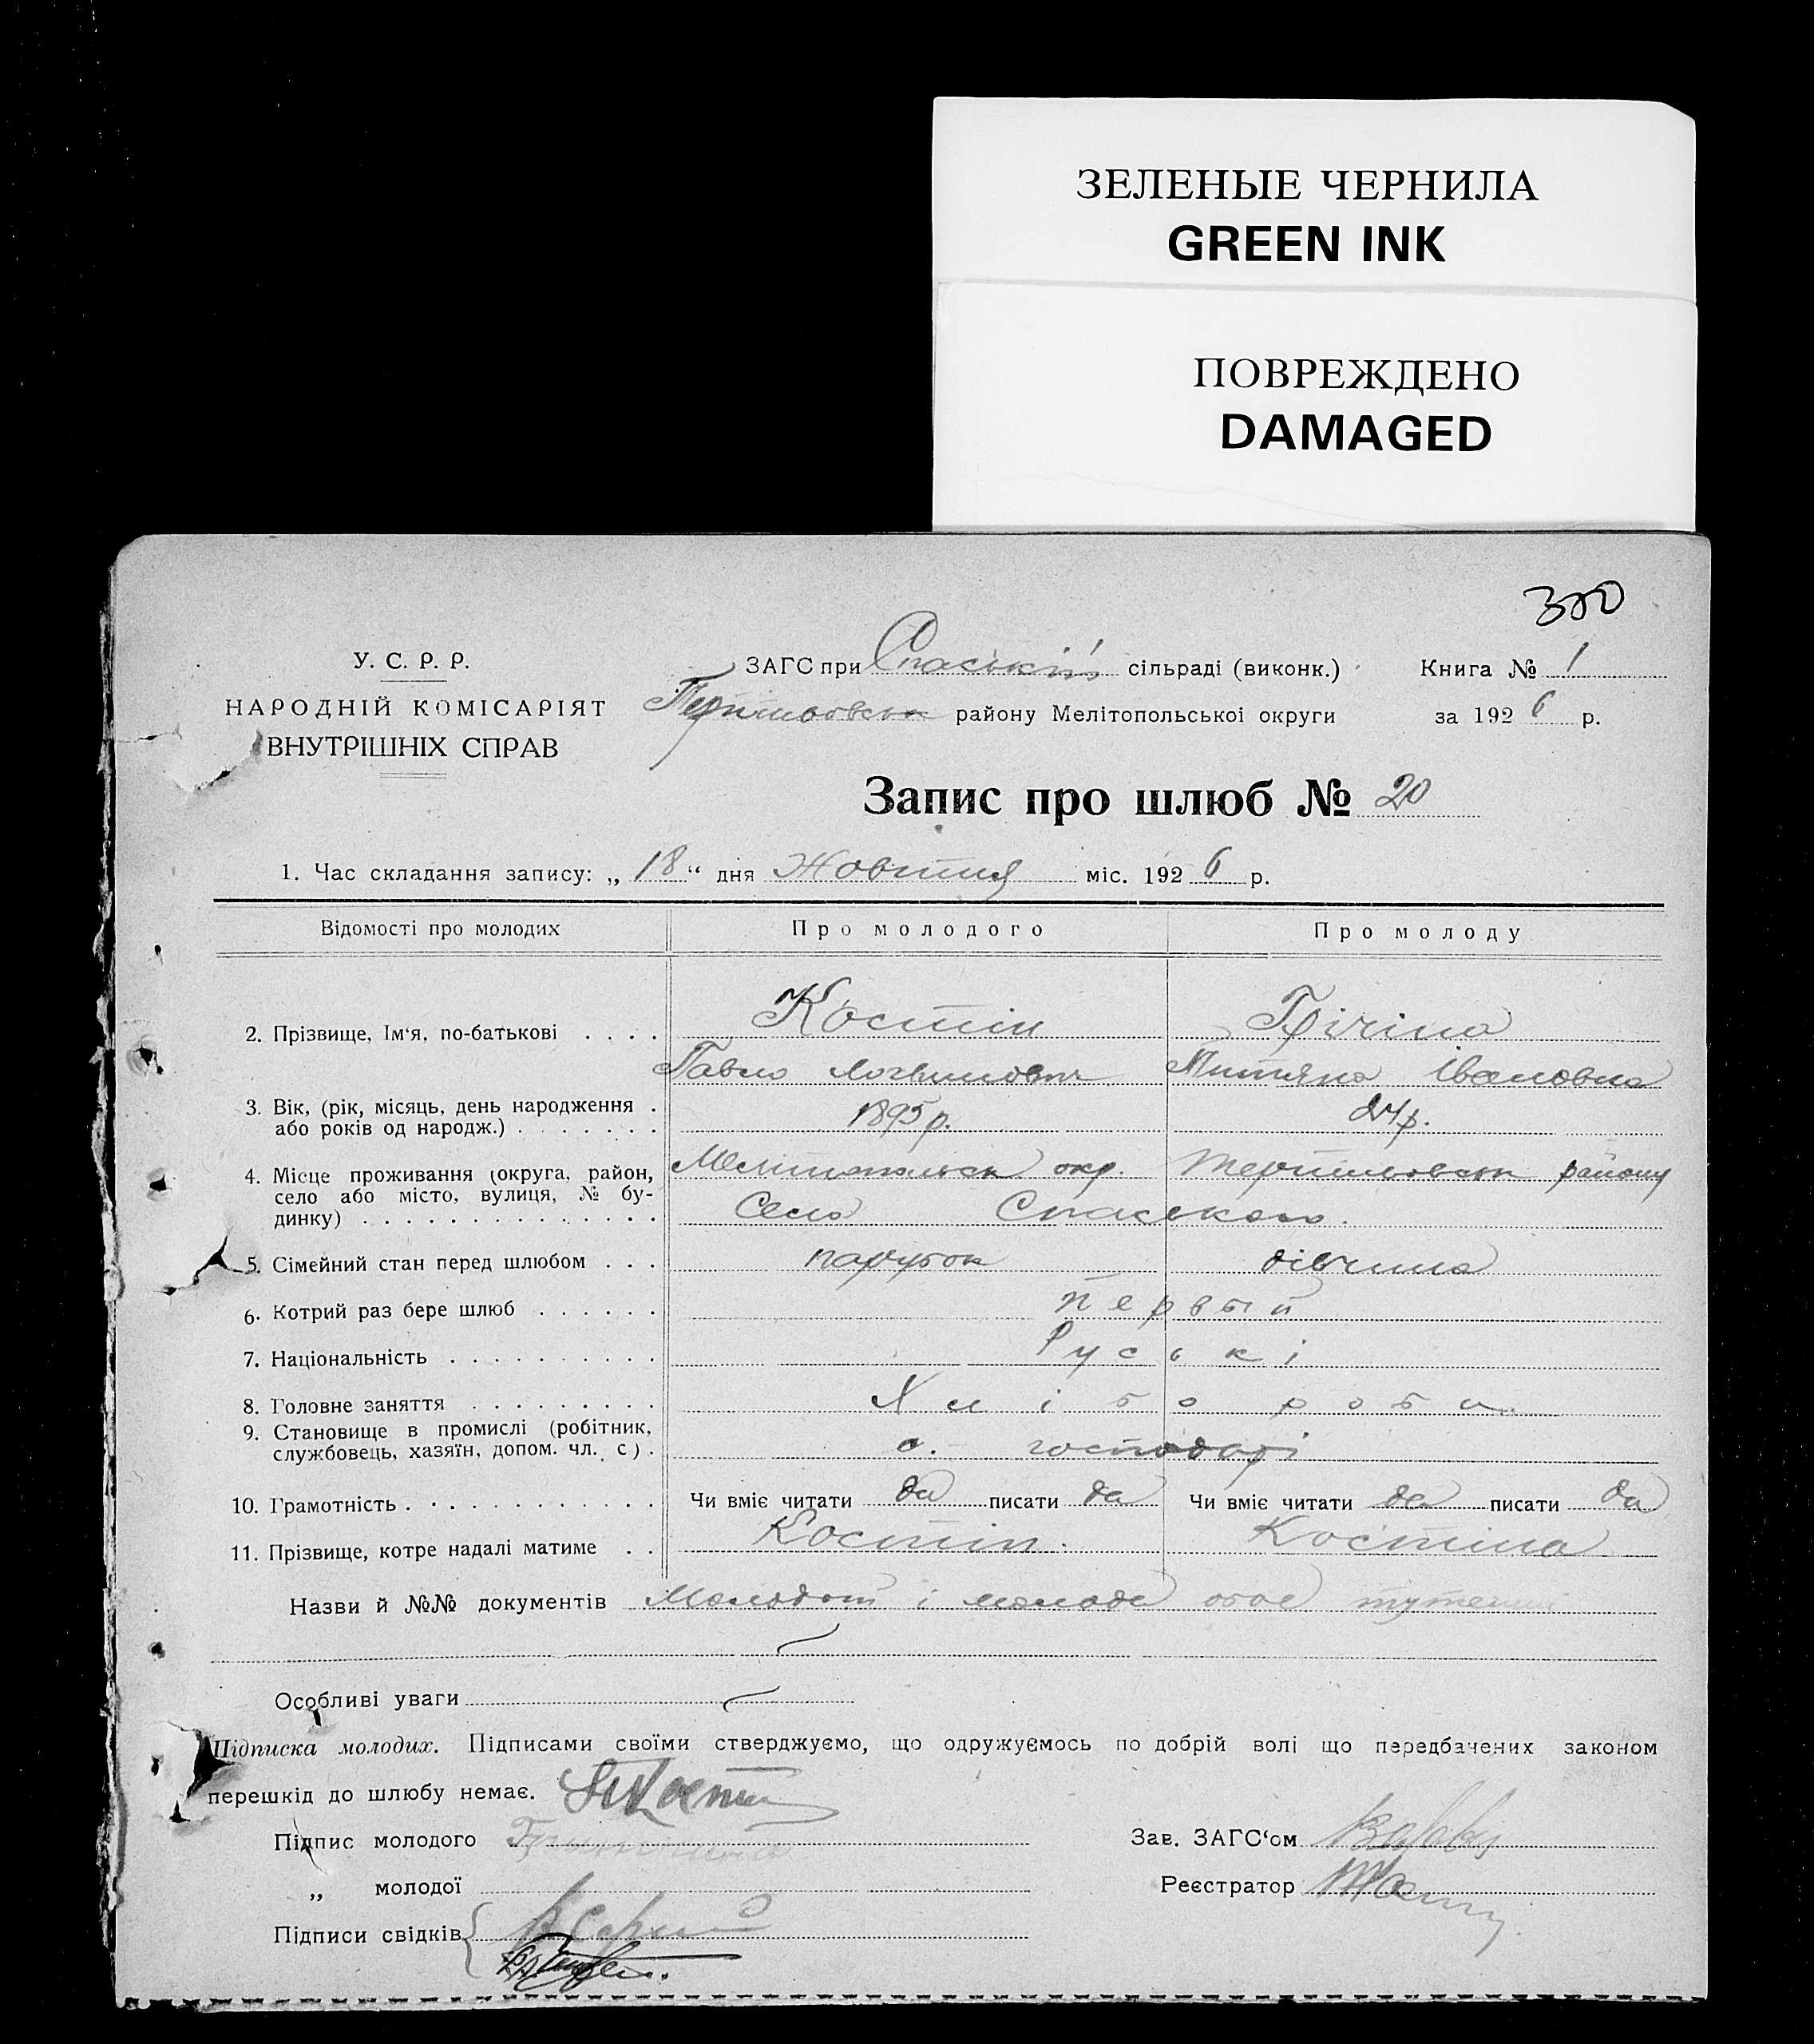 ЗЕЛЕНЫЕ ЧЕРНИЛА
GREEN INK
ПОВРЕЖДЕНО
DAMAGED
У. С. Р. Р.
НАРОДНІЙ КОМІСАРІЯТ
ВНУТРІШНІХ СПРАВ
ЗАГС при Спаській сільраді (виконк.) Книга № 1
району Мелітопольської округи за 1926 р.
Запис про шлюб № 20
1. Час складання запису: „18“ дня Жовтня міс. 1926 р.
Відомості про молодих Про молодого Про молоду
2. Прізвище, Ім'я, по-батькові . . . . Костін
Павло Івановна
3. Вік, (рік, місяць, день народження . 1895 р. 24 р.
або років од народж.) . . . . . . .
4. Місце проживання (округа, район, Мелітопольск окр. району
село або місто, вулиця, № бу- Село Спаського.
динку) . . . . . . . . . . . . . .
5. Сімейний стан перед шлюбом . . . парубок дівчина
6. Котрий раз бере шлюб . . . . . . первый
7. Національність . . . . . . . . . . Руські
8. Головне заняття . . . . . . . . . Хлібороби
9. Становище в промислі (робітник,
службовець, хазяїн, допом. чл. с). господарі
10. Грамотність . . . . . . . . . . . Чи вміє читати да писати да Чи вміє читати да писати да
11. Прізвище, котре надалі матиме . . Костін. Костіна
Назви й №№ документів Молодий і молода обое тутешні
Особливі уваги
Підписка молодих. Підписами своїми стверджуємо, що одружуємось по добрій волі що передбачених законом
перешкід до шлюбу немає.
Підпис молодого Зав. ЗАГС'ом
„ молодої Реєстратор
Підписи свідків